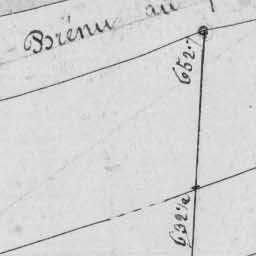 Brénu au
652.7
692.2